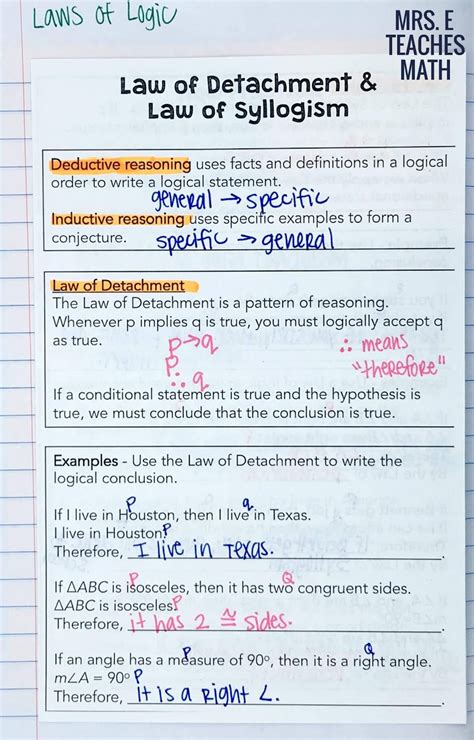 Laws of Logic
MRS. E
TEACHES
MATH
Law of Detachment &
Law of Syllogism
Deductive reasoning uses facts and definitions in a logical
order to write a logical statement.
general → specific
Inductive reasoning uses specific examples to form a
conjecture.
specific → general
Law of Detachment
The Law of Detachment is a pattern of reasoning.
Whenever p implies q is true, you must logically accept q
as true.
p→q
p
∴ q
∴ means
"therefore"
If a conditional statement is true and the hypothesis is
true, we must conclude that the conclusion is true.
Examples - Use the Law of Detachment to write the
logical conclusion.
P q
If I live in Houston, then I live in Texas.
I live in Houston. P
Therefore, I live in Texas.
P Q
If ΔABC is isosceles, then it has two congruent sides.
ΔABC is isosceles. P
Therefore, it has 2 ≅ sides.
P Q
If an angle has a measure of 90°, then it is a right angle.
m∠A = 90° P
Therefore, It is a right ∠.